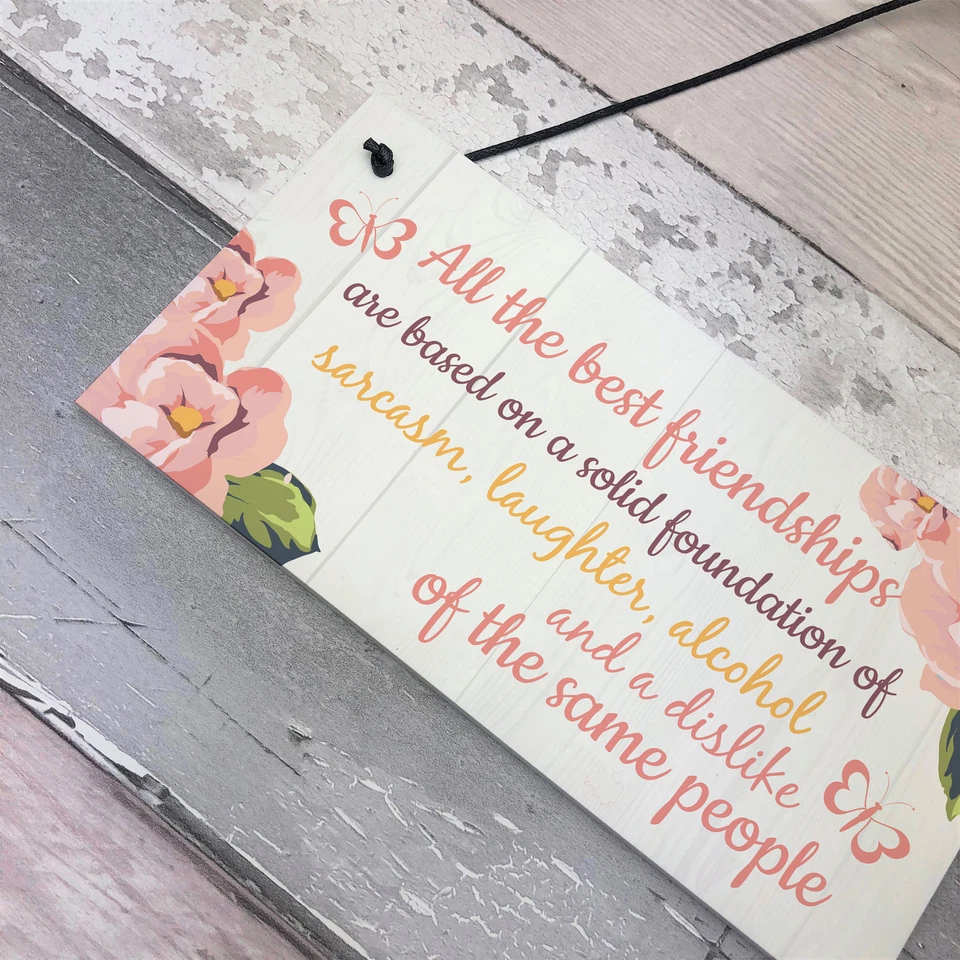 All the best friendships
are based on a solid foundation of
sarcasm, laughter, alcohol
and a dislike
of the same people